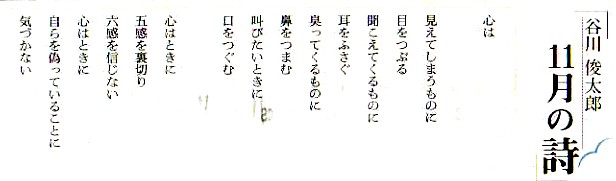 谷川 俊太郎
11月の詩
心は
見えてしまうものに
目をつぶる
聞こえてくるものに
耳をふさぐ
臭ってくるものに
鼻をつまむ
叫びたいときに
口をつぐむ
心はときに
五感を裏切り
六感を信じない
心はときに
自らを偽っていることに
気づかない